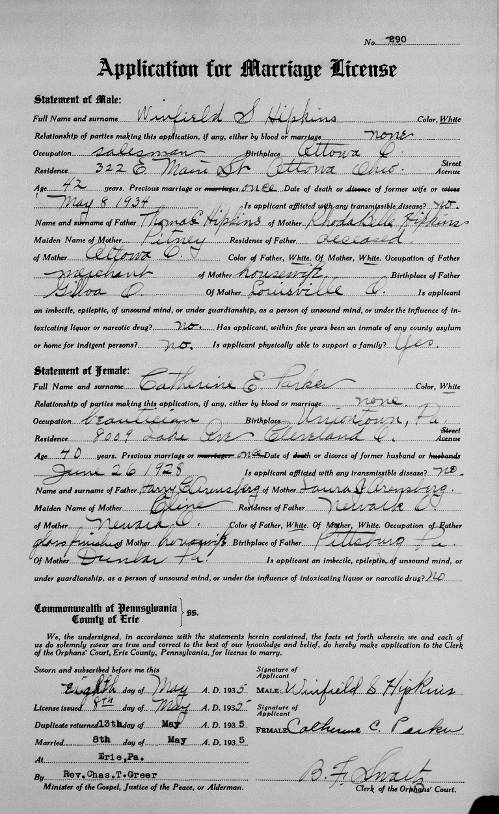 No. 290
Application for Marriage License
Statement of Male:
Full Name and surname Winfield S Hipkins Color, White
Relationship of parties making this application, if any, either by blood or marriage none
Occupation salesman Birthplace Ottowa O.
Residence 322 E Main St Ottowa Ohio. Street Avenue
Age 42 years. Previous marriage or marriages once Date of death or divorce of former wife or wives
May 8 1934 Is applicant afflicted with any transmissible disease? no.
Name and surname of Father Thomas Hipkins of Mother Rhoda Belle Hipkins
Maiden Name of Mother Putney Residence of Father deceased
of Mother Ottowa O. Color of Father, White. Of Mother, White. Occupation of Father
merchant of Mother housewife Birthplace of Father
Gilboa O. Of Mother Louisville O. Is applicant
an imbecile, epileptic, of unsound mind, or under guardianship, as a person of unsound mind, or under the influence of in-
toxicating liquor or narcotic drug? no. Has applicant, within five years been an inmate of any county asylum
or home for indigent persons? no. Is applicant physically able to support a family? Yes.
Statement of Female:
Full Name and surname Catherine E Parker Color, White
Relationship of parties making this application, if any, either by blood or marriage none.
Occupation beautician Birthplace Uniontown, Pa.
Residence 8009 Lake Ave Cleveland O. Street Avenue
Age 40 years. Previous marriage or marriages one Date of death or divorce of former husband or husbands
June 26 1928 Is applicant afflicted with any transmissible disease? no.
Name and surname of Father Harry of Mother Laura
Maiden Name of Mother Residence of Father Newark O
of Mother Newark O. Color of Father, White. Of Mother, White. Occupation of Father
glass finisher of Mother housewife Birthplace of Father Pittsburg Pa.
Of Mother Dunbar Pa. Is applicant an imbecile, epileptic, of unsound mind, or
under guardianship, as a person of unsound mind, or under the influence of intoxicating liquor or narcotic drug? no
Commonwealth of Pennsylvania
County of Erie } ss.
We, the undersigned, in accordance with the statements herein contained, the facts set forth wherein we and each of
us do solemnly swear are true and correct to the best of our knowledge and belief, do hereby make application to the Clerk
of the Orphans' Court, Erie County, Pennsylvania, for license to marry.
Sworn and subscribed before me this Signature of Applicant
Eighth day of May A. D. 1935 MALE: Winfield S. Hipkins
License issued 8th day of May A. D. 1935 Signature of Applicant
Duplicate returned 13th day of May A. D. 1935 FEMALE Catherine E. Parker
Married 8th day of May A. D. 1935
At Erie, Pa.
By Rev. Chas. T. Greer B. F.
Minister of the Gospel, Justice of the Peace, or Alderman. Clerk of the Orphans' Court.